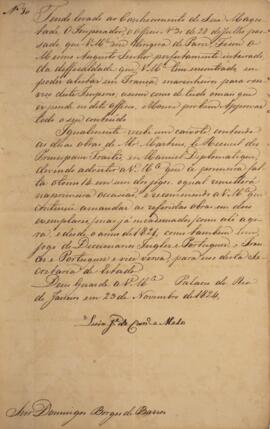 Nº 30
Tendo levado ao Conhecimento de Sua Mages
tade O Imperador, o officio Nº 31 de 28 de Julho pas
sado que V. Mce em
Mesmo Augusto Senhor perfeitamente inteirado
da difficuldade que V. Mce tem encontrado em
poder alistar em França, marinheiros para o ser
viço deste Imperio, assim como de tudo o mais que
expende no dito officio, Houve por bem Approvar
todo o seu contheudo.
Igualmente recebi um caixote contendo
as duas obras de Mr. Martens, le Recueil des
Principaux Traités, e Manuel Diplomatique,
devendo advertir a V. Mce que da primeira fal
ta o tomo 14 em um dos jogos, o qual remetterá
na primeira occasião; e recommendo a V. Mce que
continue a mandar as referidas obras em dois
exemplares, mas já encadernados, como até ago
ra, e desde o anno de 1821, como tambem hum
jogo de Diccionario Inglez e Portuguez, e Fran
cez e Portuguez e vice versa, para uso desta Se
cretaria de Estado.
Deos Guarde a V. Mce Palacio do Rio
de Janeiro em 23 de Novembro de 1824.
Luiz Jé de Carvº e Mello
Snr Domingos Borges de Barros